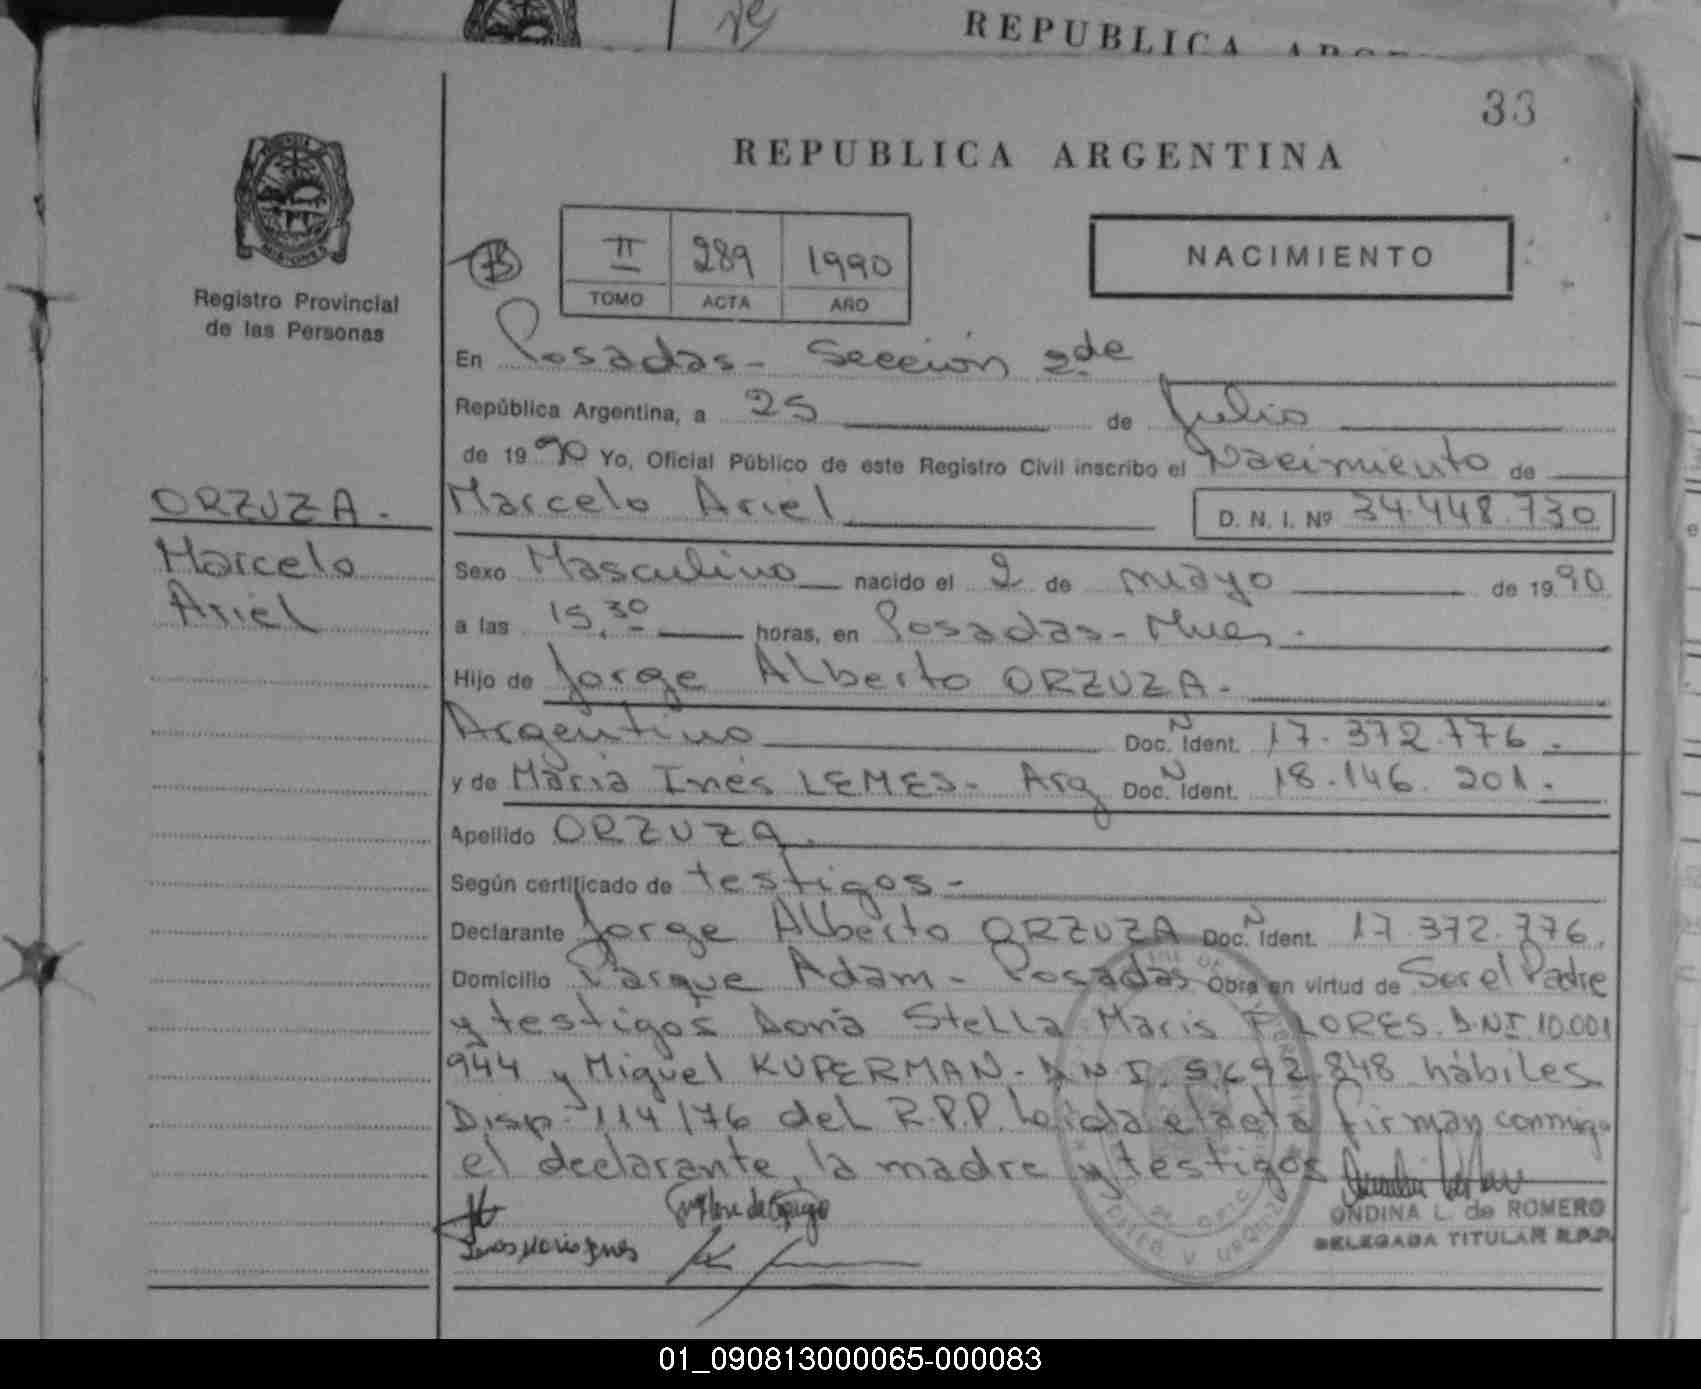 REPUBLICA
33
REPUBLICA ARGENTINA
II 289 1990
TOMO ACTA AÑO
NACIMIENTO
Registro Provincial
de las Personas
En Posadas - Sección 2da
República Argentina, a 25 de Julio
de 1990 Yo, Oficial Público de este Registro Civil inscribo el Nacimiento de
ORZUZA.
Marcelo Ariel D. N. I. Nº 34.448.730
Marcelo
Ariel
Sexo Masculino nacido el 2 de mayo de 1990
a las 15,30 horas, en Posadas - Mnes.
Hijo de Jorge Alberto ORZUZA.
Argentino Doc. N Ident. 17.372.776.
y de Maria Inés LEMES - Arg Doc. N Ident. 18.146.201.
Apellido ORZUZA.
Según certificado de testigos -
Declarante Jorge Alberto ORZUZA Doc. N Ident. 17.372.776.
Domicilio Parque Adam - Posadas Obra en virtud de Ser el Padre
y testigos Doña Stella Maris FLORES. D.N.I. 10.001
944 y Miguel KUPERMAN. D.N.I. 5.692.848 hábiles
Disp. 114/76 del R.P.P. Leida el acta firman conmigo
el declarante, la madre y testigos
ONDINA L. de ROMERO
DELEGADA TITULAR R.P.P.
01_090813000065-000083